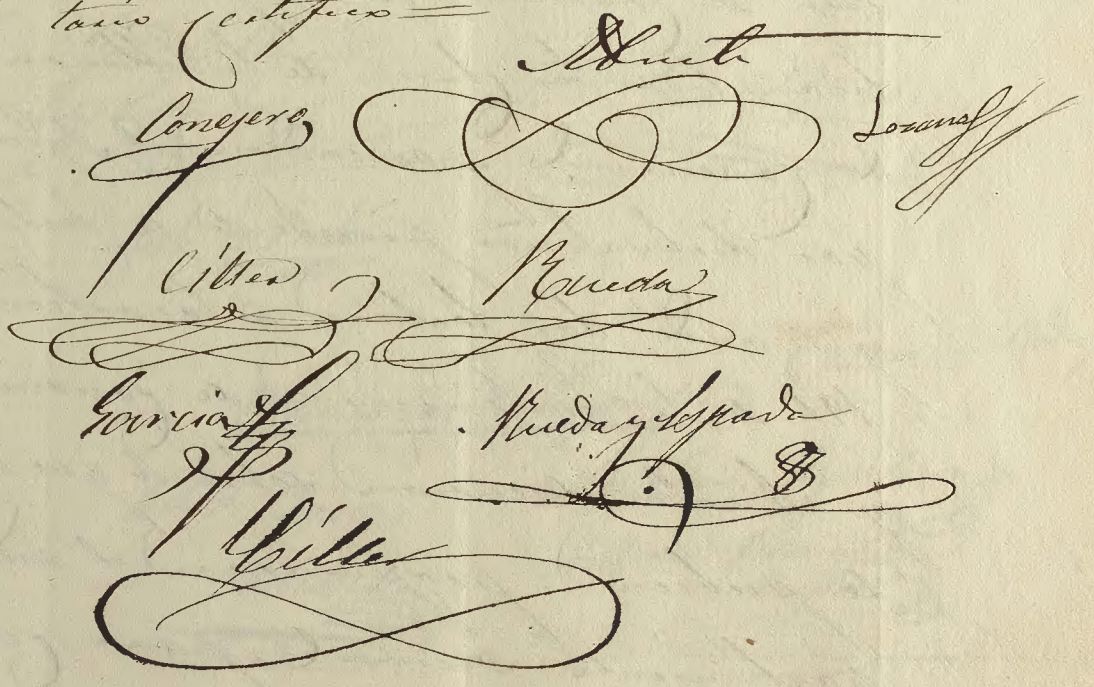 tario certifico =
Conejero
Lozano
Ciller
Rueda
Garcia
Rueda y Losada
Ciller